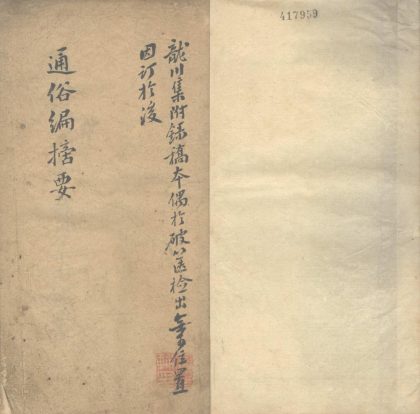 417959
龍川集附錄稿本偶於破篋檢出無信置
因訂於後
通俗編摘要